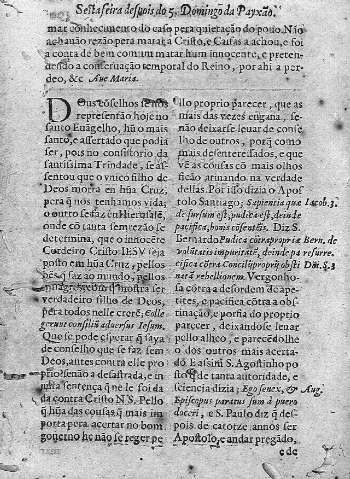 Sestafeira despois do 5. Domingo da Payxão.
mar conhecimento do caso pera quietação do pouo. Nio
achauão rezão pera matar a Cristo, e Caifas a achou, e foi
a conta de bem comum matar hum innocente, e preten-
dendo a conseruação temporal do Reino, por ahi a per-
deo, &c Aue Maria.
DOus cõselhos se nos
representão hoje no
santo Euãgelho, hũ o mais
santo, e assertado que podia
ser, pois no consistorio da
santissima Trindade, se as-
sentou que o vnico filho de
Deos morra en hũa Cruz,
pera q̃ nos tenhamos vida;
o outro se faz en Hierusalẽ,
onde cõ tanta semrezão se
determina, que o innocẽte
Cordeiro Cristo IESV seja
posto em hũa Cruz, pellos
bẽs q̃ faz ao mundo, pellos
milagres com q̃ mostra ser
verdadeiro filho de Deos,
pera todos nelle crerẽ; Colle
gerunt consiliũ aduersus Iesum.
Que se pode esperar q̃ saya
de conselho que se faz sem
Deos, antes contra elle pro
prio senão a desastrada, e in
justa sentença q̃ ne le foi da
da contra Cristo N S. Pello
q̃ hũa das cousas q̃ mais im
porta pera acertar no bom
gouerno he não se reger pe
llo proprio parecer, que as
mais das vezes engana, se-
não deixarse leuar de conse
lho de outros, porq̃ como
mais desenteressados, e que
vẽ as cousas cõ mais olhos
atinando na verdade
dellas. Por isso dizia o Apos
tolo Santiago; Sapientia quæ
de sursum est, pudica est, deinde
pacifica, bonis cõsentiẽs. Diz S.
Bernardo Pudica cõtra propriæ
volũtatis impunitatẽ, deinde
pacifica cõtra Concilii proprij obsti
natã rebellionem. Vergonho-
sa cõtra a desordem de ape-
tites, e pacifica cõtra a obs-
tinação, e porfia do proprio
parecer, deixandose leuar
pello alheo, e parecẽdolhe
o dos outros mais acerta-
do E assim S. Agostinho po
sto de tanta autoridade, e
sciencia dizia; Ego senex, &
Episcopus paratus sum à puero
doceri, e S. Paulo diz q̃ des-
pois de catorze annos ser
Apostolo, e andar pregãdo,
e de
Iacob. 3.
Bern. de
Aug.